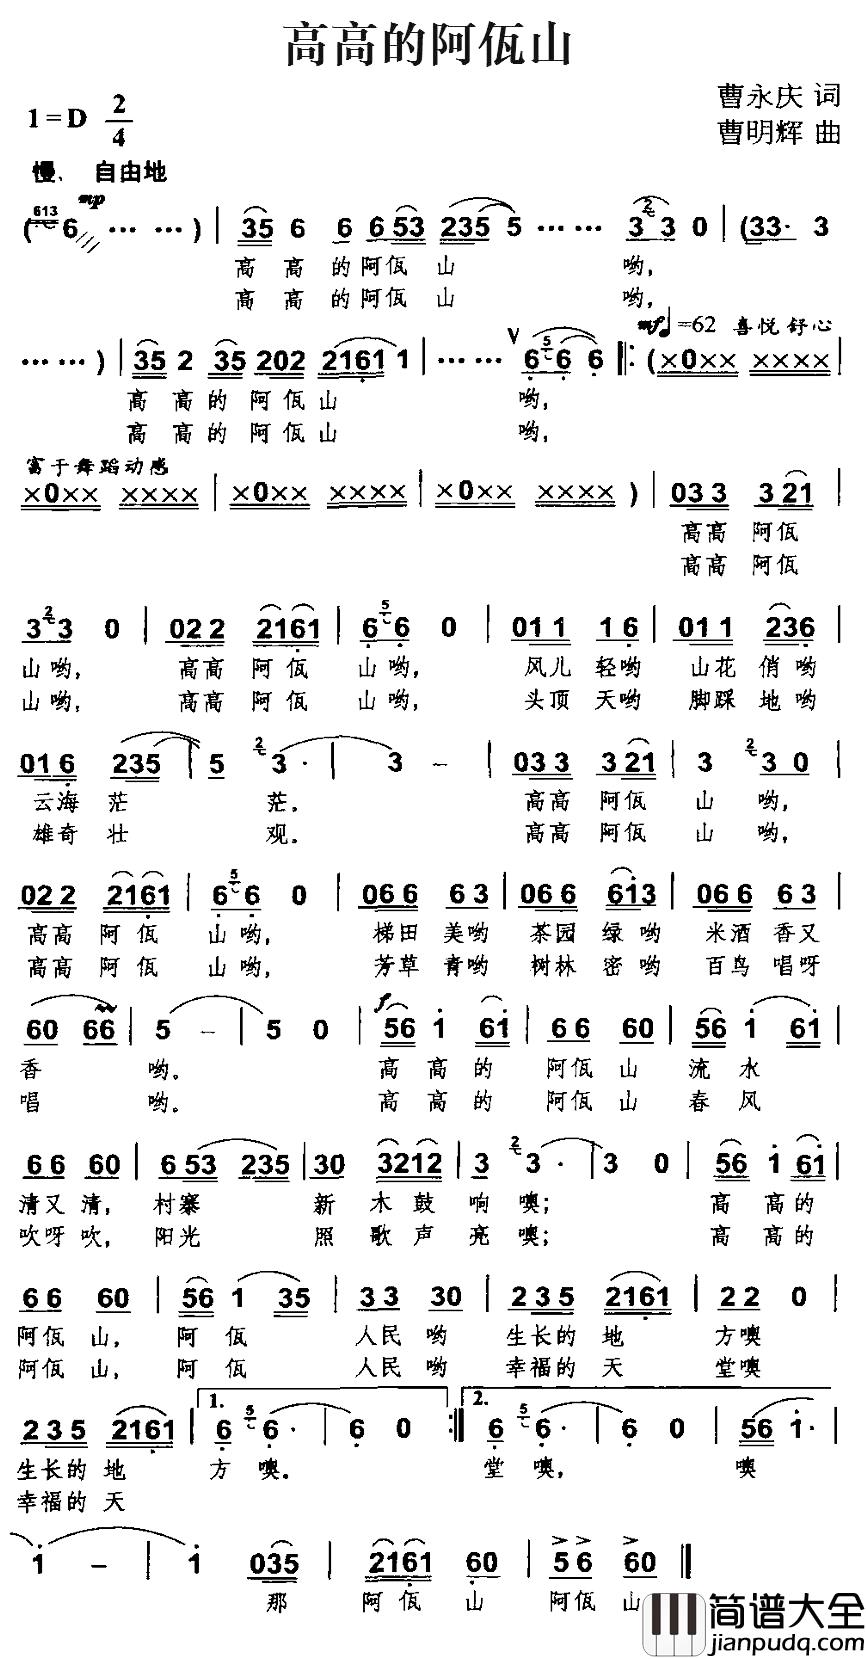 高高的阿佤山
曹永庆 词
1=D 2/4
曹明辉 曲
慢、 自由地
mp
( 613 6 ··· ··· ) | 35 6 6 6 53 235 5 ··· ··· 2 3 3 0 | (33· 3
高 高 的 阿 佤 山 哟,
高 高 的 阿 佤 山 哟,
mf ♩=62 喜悦 舒心
··· ··· ) | 35 2 35 202 2161 1 | ··· ··· V 6 5 6 6 ‖: (×0×× ×××× |
高 高 的 阿 佤 山 哟,
高 高 的 阿 佤 山 哟,
富于舞蹈动感
×0×× ×××× | ×0×× ×××× | ×0×× ×××× ) | 033 3 21 |
高高 阿佤
高高 阿佤
3 2 3 0 | 022 2161 | 6 5 6 0 | 011 1 6 | 011 236 |
山哟, 高高 阿佤 山哟, 风儿 轻哟 山花 俏哟
山哟, 高高 阿佤 山哟, 头顶 天哟 脚踩 地哟
016 235 | 5 2 3 · | 3 – | 033 3 21 | 3 2 3 0 |
云海 茫 茫。 高高 阿佤 山 哟,
雄奇 壮 观。 高高 阿佤 山 哟,
022 2161 | 6 5 6 0 | 066 6 3 | 066 613 | 066 6 3 |
高高 阿佤 山哟, 梯田 美哟 茶园 绿哟 米酒 香又
高高 阿佤 山哟, 芳草 青哟 树林 密哟 百鸟 唱呀
f
60 66 | 5 – | 5 0 | 56 1 61 | 66 60 | 56 1 61 |
香 哟。 高 高 的 阿佤 山 流 水
唱 哟。 高 高 的 阿佤 山 春 风
66 60 | 6 53 235 | 30 3212 | 3 2 3 · | 3 0 | 56 1 61 |
清又 清, 村寨 新 木 鼓 响 噢; 高 高 的
吹呀 吹, 阳光 照 歌 声 亮 噢; 高 高 的
66 60 | 56 1 35 | 33 30 | 2 3 5 2161 | 22 0 |
阿佤 山, 阿 佤 人民 哟 生长的 地 方噢
阿佤 山, 阿 佤 人民 哟 幸福的 天 堂噢
1. 2.
2 3 5 2161 | 6 5 6 · | 6 0 :‖ 6 5 6 · | 6 0 | 56 1· |
生长的 地 方 噢。 堂 噢, 噢
幸福的 天
1 – | 1 035 | 2161 60 | 5 6 60 ‖
那 阿 佤 山 阿佤 山
简谱大全
jianpudq.com